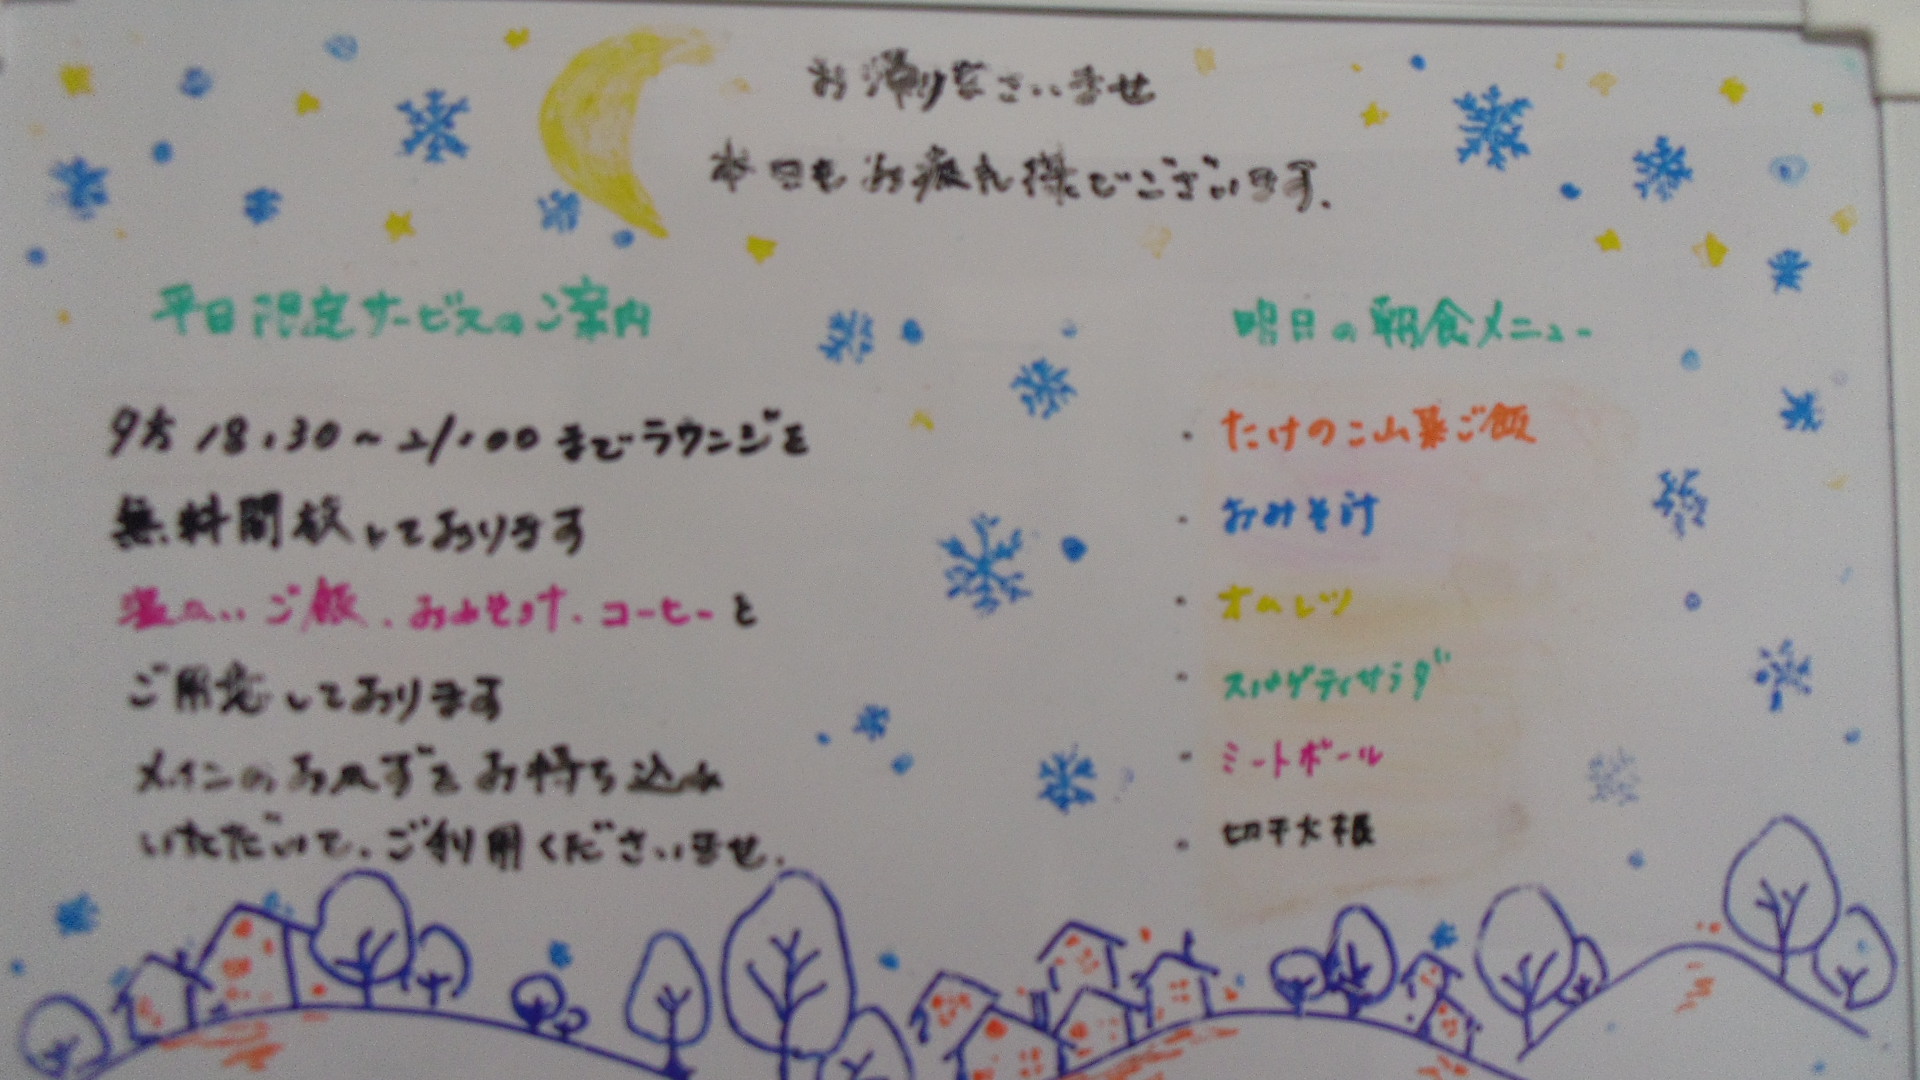 お帰りなさいませ
本日もお疲れ様でございます.
平日限定サービスのご案内
夕方 18:30~21:00までラウンジを
無料開放しております
温かいご飯、おみそ汁、コーヒーと
ご用意しております
メインのおかずをお持ち込み
いただいて、ご利用くださいませ.
明日の朝食メニュー
・たけのこ山菜ご飯
・おみそ汁
・オムレツ
・スパゲティサラダ
・ミートボール
・切干大根